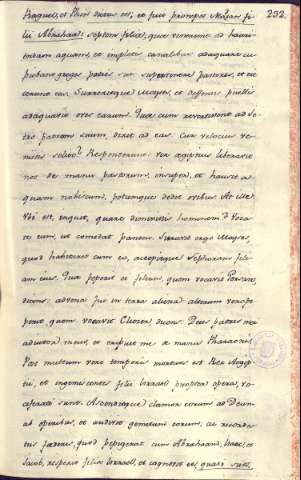 232.
Raguel, et Thin dictus est, et fuit pronepos Majan fi-
lii Abrahami septem filiae, quae venerunt ad hauri-
endam aquam, et impletis canalibus adaquare cu-
piebant greges patris sui supervenere pastores, et eie-
cerunt eas. Surrexitque Moyses, et defensis puellis
adaquavit oves earum. Quae cum revertissent ad Ie-
tro patrem suum, dixit ad eas. Cur velocius ve-
nistis solito? Responderunt vir aegiptius liberavit
nos de manu pastorum, insuper, et hausit a-
quam nobiscum, potumque dedit ovibus. At ille
Ubi est, inquit, quare dimisistis hominem? Voca-
te eum, ut comedat panem. Iuravit ergo Moyses,
quod habitaret cum eo, accepitque Sephoram fili-
am eius. Quae peperit ei filium, quem vocavit Gersam,
dicens: advena fui in terra aliena alterum vero pe-
perit, quem vocavit Eliezer dicens: Deus patris mei
adiutor meus, et eripuit me a manu Pharaonis.
Post multum vero temporis mortuus est Rex Aegip-
ti, et ingemiscentes filii Israel propter opera, vo-
ciferati sunt. Ascenditque clamor eorum ad Deum
ab operibus, et audivit gemitum eorum, ac recorda-
tus foederis, quod pepigerat cum Abraham, Isaac, et
Iacob, respexit filios Israel, et cognovit eos quasi suos.